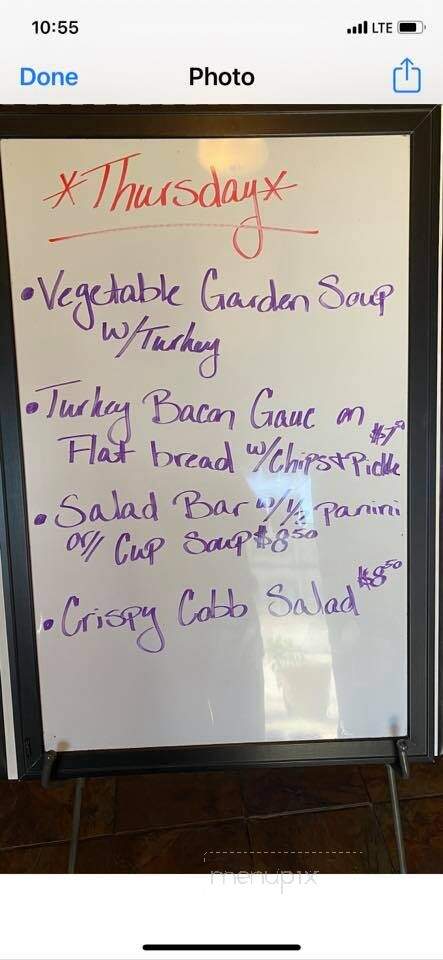 10:55
LTE
Done
Photo
*Thursday*
• Vegetable Garden Soup
w/Turkey
• Turkey Bacon Gauc on
Flat bread w/Chips+Pickle
• Salad Bar w/ 1/2 panini
or// Cup Soup $8.50
• Crispy Cobb Salad $8.50
menupix